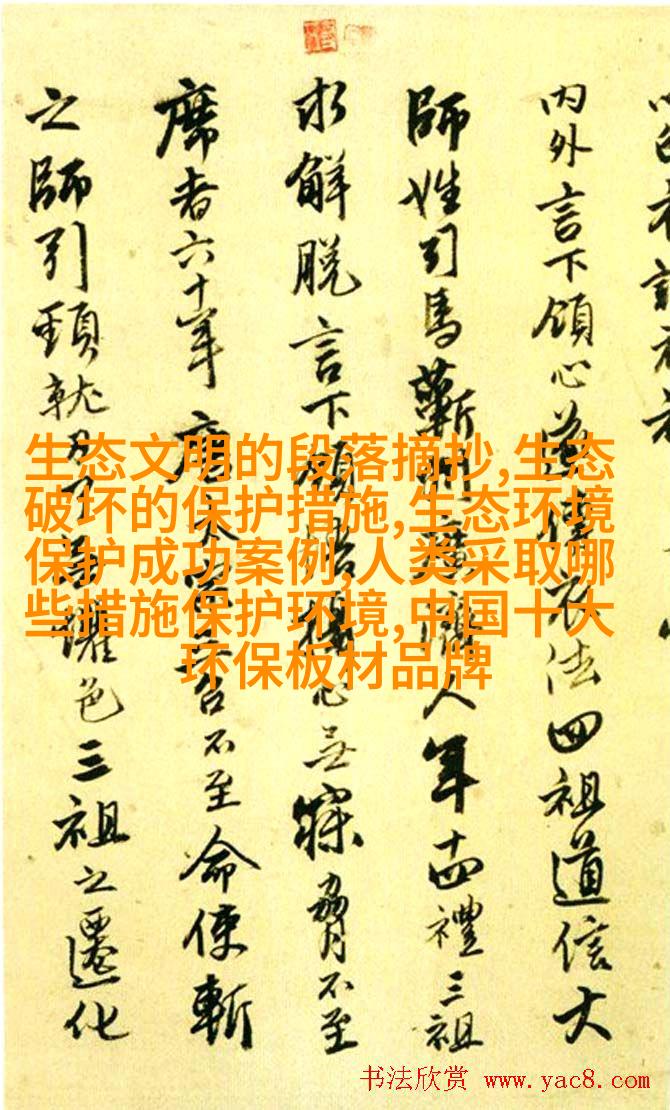 内外言下領心遂傳衣法四祖道信大
師姓司馬蘄州廣濟人年十四禮三祖
求解脱言下領悟攝心無寐脅不至
席者六十年唐太宗三召不至命使斬
之師引頸就刃了無懼色三祖之遷化
生态文明的段落摘抄,生态
破坏的保护措施,生态环境
保护成功案例,人类采取哪
些措施保护环境,中国十大
环保板材品牌
书法欣赏 www.yac8.com